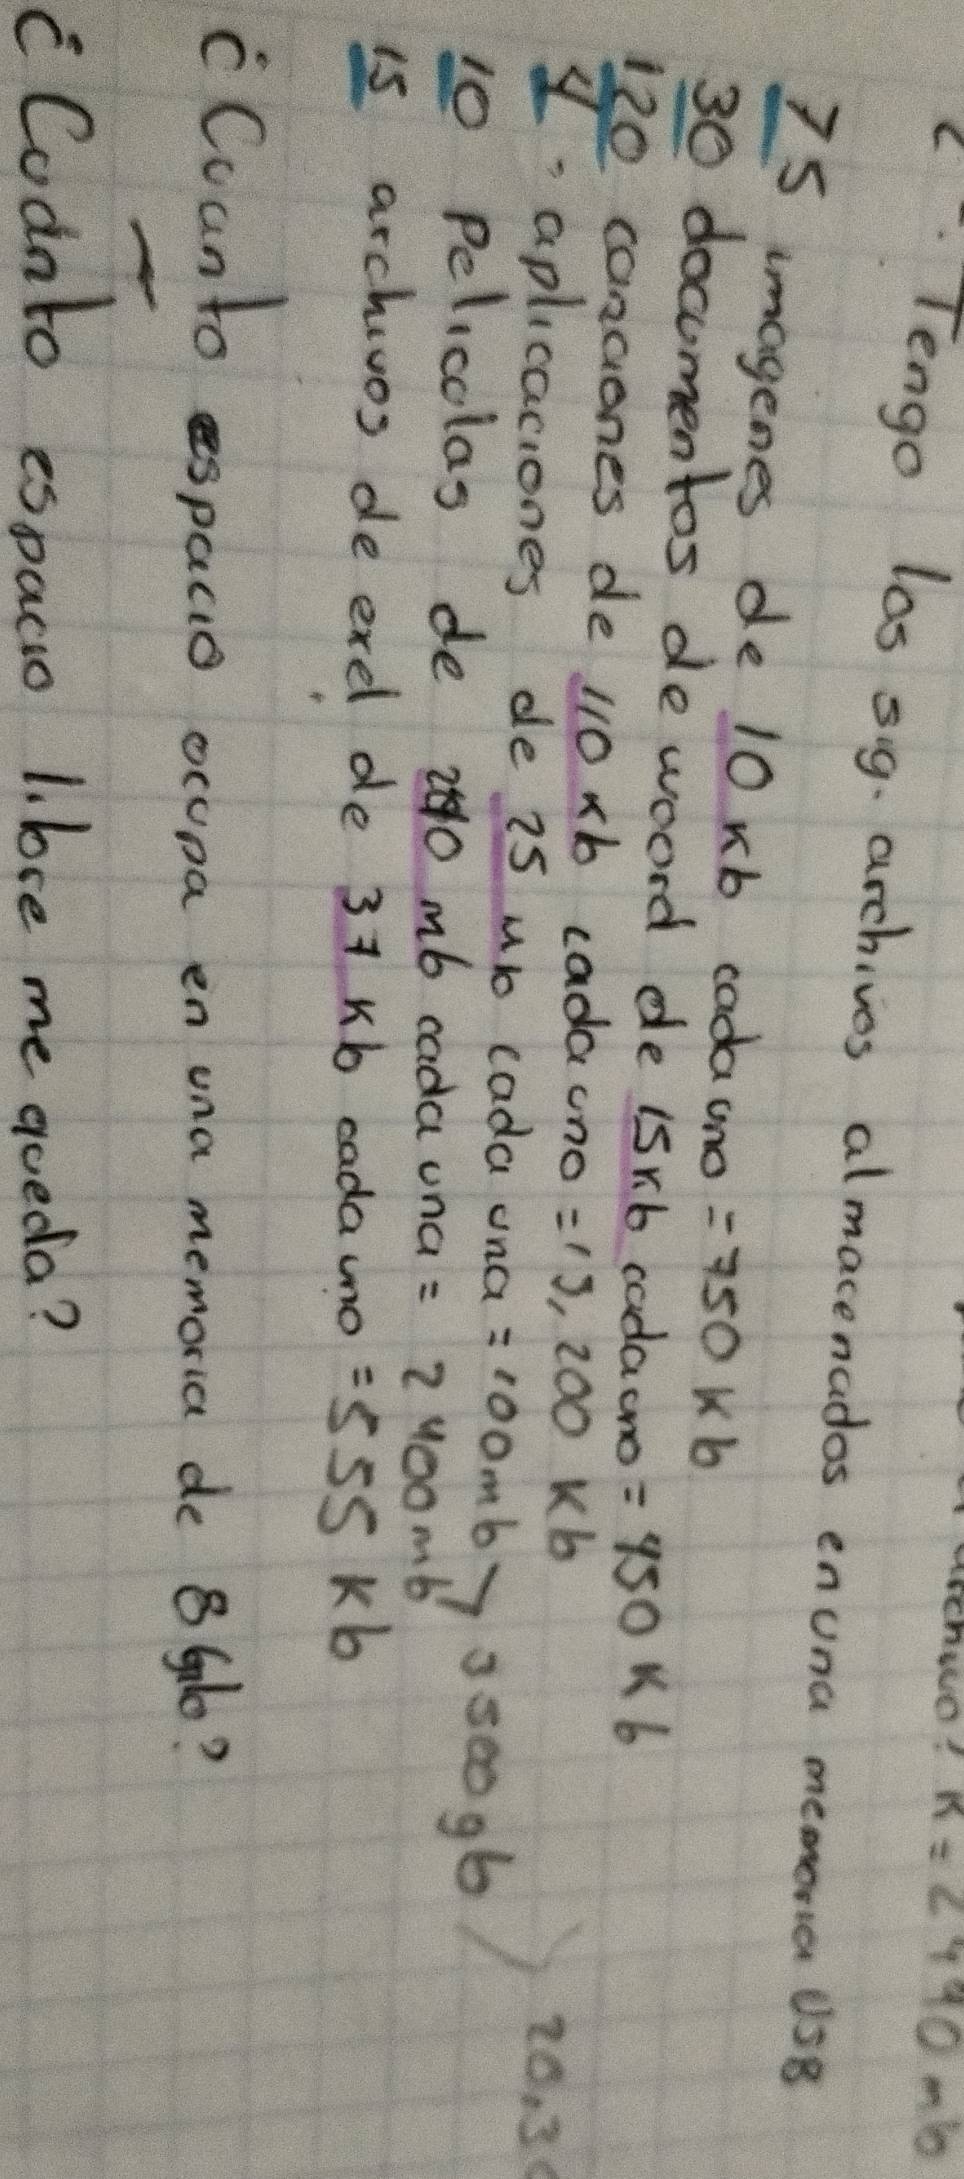 K = 2490 mb
2-. Tengo los sig. archivos almacenados en una memoria USB
75 imagenes de 10 Kb cada uno = 750 Kb
30 documentos de woord de 15 Kb cada uno = 450 Kb
120 canciones de 110 Kb cada uno = 13,200 Kb
4 aplicaciones de 25 Mb cada una = 100 mb > 3500 gb ) 20,3
10 Pelicolas de 240 mb cada una = 2400 mb
15 archivos de exel de 37 Kb cada uno = 555 Kb
¿Cuanto espacio ocupa en una memoria de 8 Gb?
¿Cuanto espacio libre me queda?